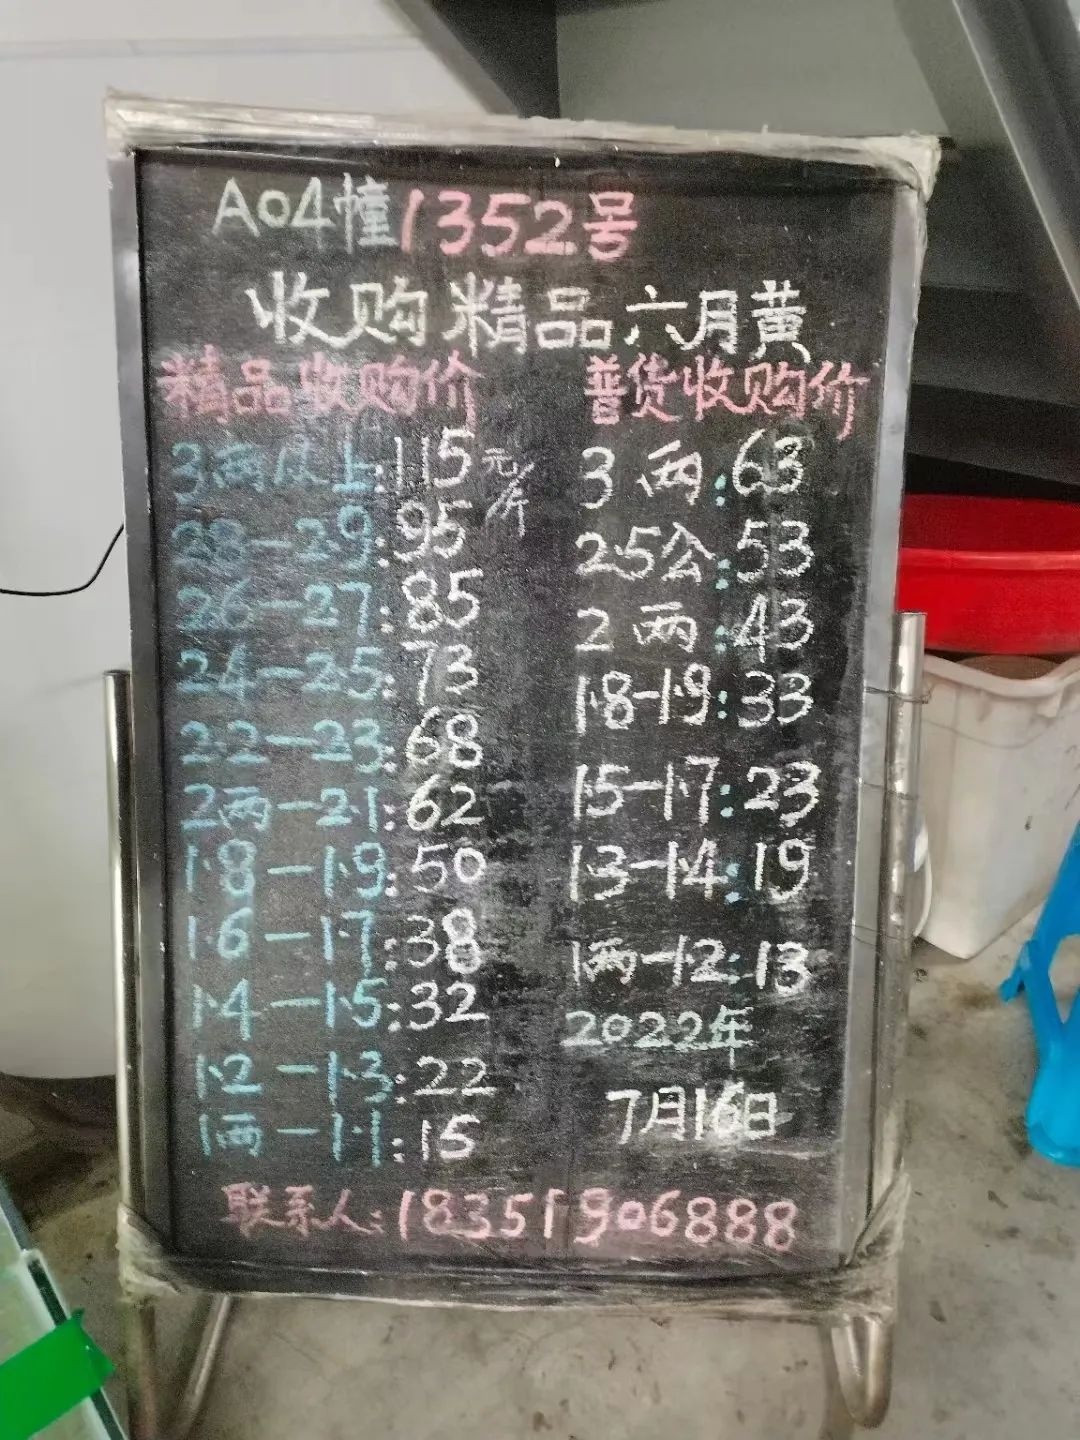 A04幢1352号
收购精品六月黄
精品收购价
3两以上:115元/斤
28-29:95
26-27:85
24-25:73
2.2-23:68
2两-2.1:62
1.8-1.9:50
1.6-1.7:38
1.4-1.5:32
1.2-1.3:22
1两-1.1:15
普货收购价
3两:63
2.5公:53
2两:43
1.8-1.9:33
1.5-1.7:23
1.3-1.4:19
1两-1.2:13
2022年
7月16日
联系人:18351906888